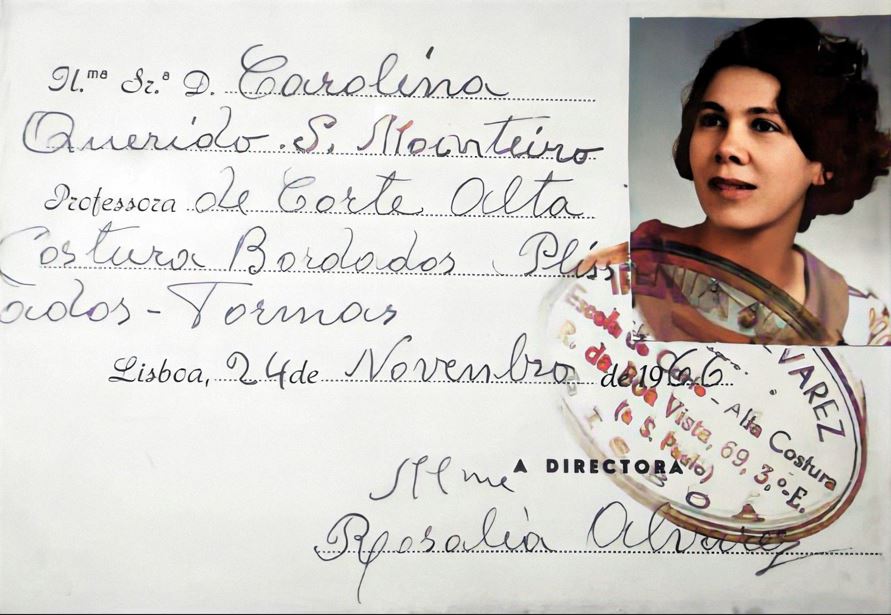 Il.ma Sr.a D. Carolina
Querido S. Monteiro
Professora de Corte Alta
Costura Bordados Pliss
ados - Formas
Lisboa, 24 de Novembro de 1966
A DIRECTORA
Mme
Rosalia Alvarez
ALVAREZ
Escola de Corte - Alta Costura
R. da Boa Vista, 69, 3.º-E.
(a S. Paulo)
LISBOA